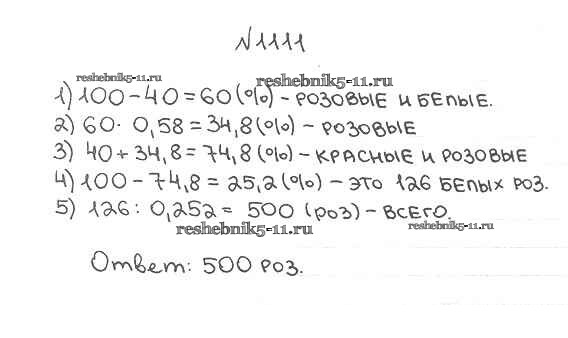 №1111
reshebnik5-11.ru
reshebnik5-11.ru
1) 100 - 40 = 60 (%) - РОЗОВЫЕ И БЕЛЫЕ.
2) 60 · 0,58 = 34,8 (%) - РОЗОВЫЕ
3) 40 + 34,8 = 74,8 (%) - КРАСНЫЕ И РОЗОВЫЕ
4) 100 - 74,8 = 25,2 (%) - ЭТО 126 БЕЛЫХ РОЗ.
5) 126 : 0,252 = 500 (РОЗ) - ВСЕГО.
reshebnik5-11.ru
reshebnik5-11.ru
Ответ: 500 РОЗ.